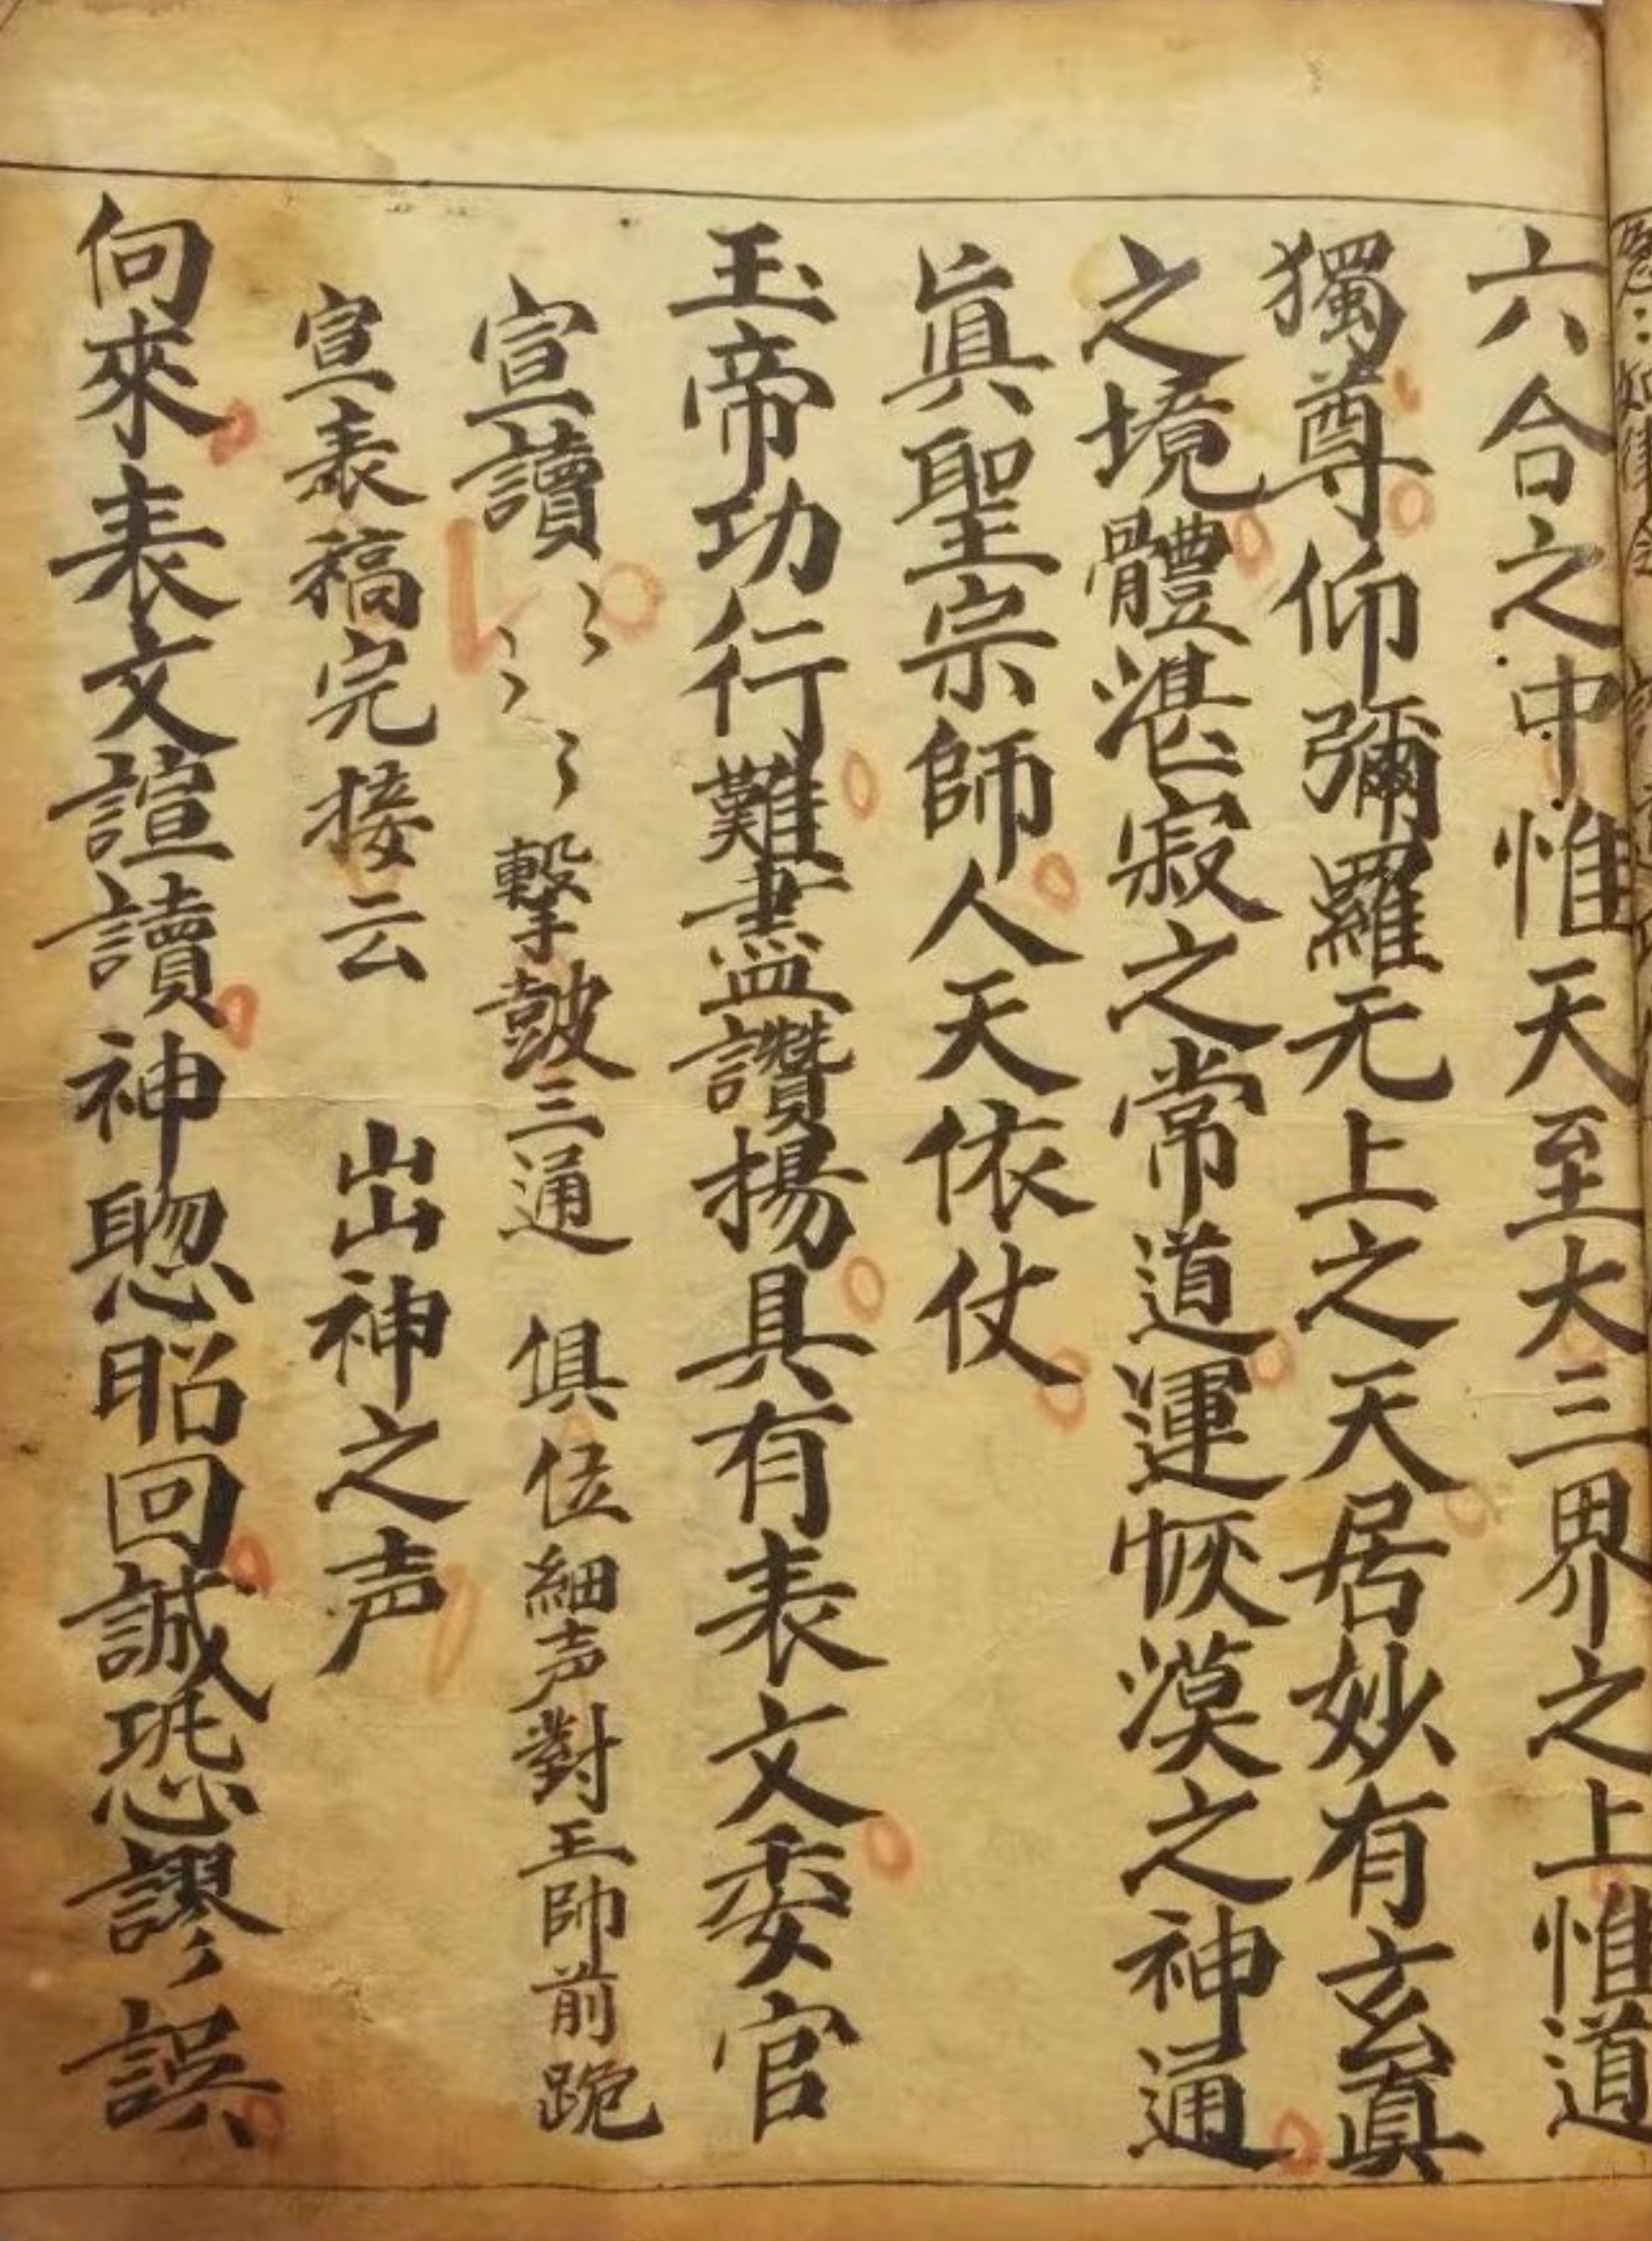 六合之中惟天至大三界之上惟道
獨尊仰彌羅无上之天居妙有玄眞
之境體湛寂之常道運恢漠之神通
眞聖宗師人天依仗
玉帝功行難盡讚揚具有表文委官
宣讀 擊皷三通 俱位細声對王帥前跪
宣表稿完接云 出神之声
向來表文諠讀神聰昭回誠恐謬誤